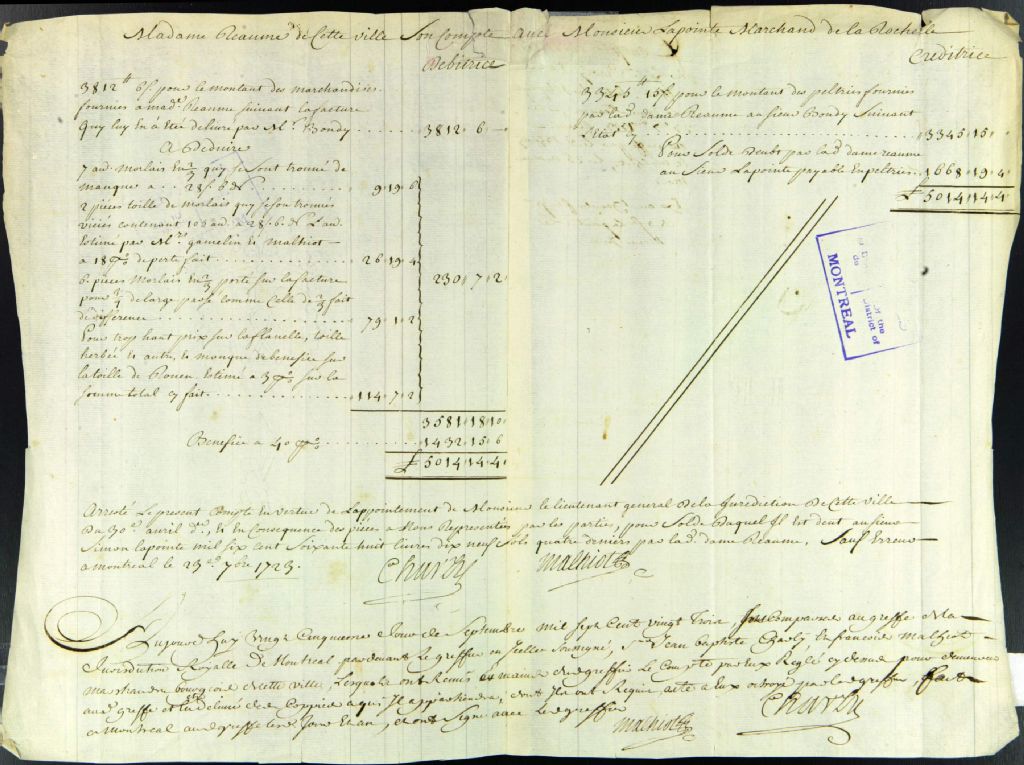 Madame Reaume de Cette ville Son Compte avec Monsieur Lapointe Marchand de la Rochelle
Debitrice
3812 ₶ 6 s. pour le montant des marchandises
fournies a mad.e Reaume suivant la facture
quy luy En a Eté delivre par M.r Bondy . . . . . 3812 , 6 , —
A Deduire
7 au. morlais En 2/3 quy se sont trouné de
manque a . . 28 s. 6 d. . . . . . 9 , 19 , 6
2 pièces toille de morlais quy se son trounés
viciés contenant 106 au. a 28 s. 6 d. L'au.
Estimé par M.rs gamelin & malhiot —
a 18 p% de perte fait . . . . . 26 , 19 , 4
6. pièces Morlais En 2/3 porté sur la facture
pour de large passé comme Celle de 2/3 fait
de difference . . . . . 79 , 1 , 2
230 , 7 , 2
Pour trop haut prix sur la flanelle, toille
herbée & autre, & manque de benefice sur
la toille de Rouen Estimé a 3 p% sur la
somme total cy fait . . . . . 114 , 7 , 2
3581 , 18 , 10
Benefice a 40 p% . . . . . 1432 , 15 , 6
₶ 5014 , 14 , 4
Creditrice
3345 ₶ 15 s. pour le montant des peltries fournies
par lad. dame Reaume au sieur Bondy Suivant
L'Etat . . . . . 3345 , 15 ,
Pour Solde Deubt par lad. dame reaume
au Sieur Lapointe payable En peltries . . 1668 , 19 , 4
₶ 5014 , 14 , 4
de
of the
District of
MONTREAL
Arresté Le present Compte En vertue de Lappointement de Monsieur le lieutenant general de la Juridiction de Cette ville
Du 30.e avril d.r, & En Consequence des pièces a Nous Representés par les parties, pour Solde Duquel Il Est deut au sieur
Simon lapointe mil six cent Soixante huit livres dix neuf Sols quatre deniers par lad. dame Reaume, Sauf Erreur
a montreal le 23.e 7bre 1723.
Charly malhiot
Aujourd'huy Vingt Cinquieme Jour de Septembre mil Sept Cent Vingt Trois, sont Comparus au greffe de la
Jurisdiction Royalle de Montreal pardevant Le greffier en Icelle Soussigné, S.r Jean Baptiste Charly, Et francois malhiot
marchands bourgeois de cette ville, Lesquels ont Remis Es mains dud. greffier Le Compte par Eux Reglé cy dessus pour demeurer
aud. greffe et En delivré des Coppies a qui Il appartiendra, dont Ils ont Requis acte a Eux octroyé par led. greffier, fait
a Montreal aud. greffe les d. Jour Et an, et ont Signé avec Led. greffier
malhiot Charly